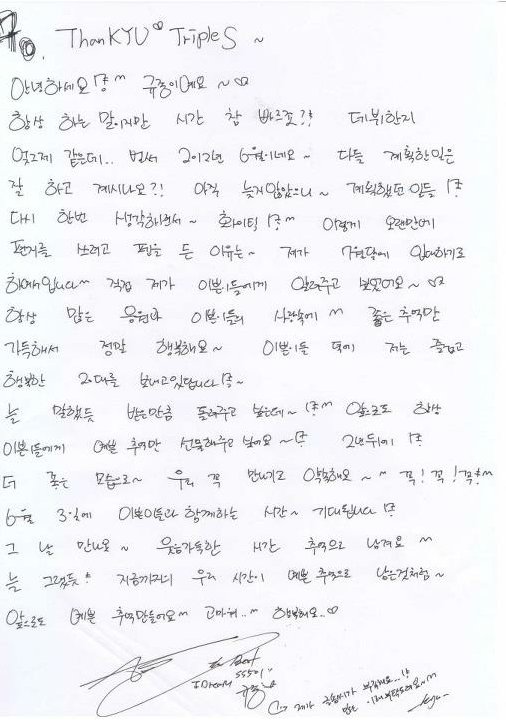 To. ThanKYU♡ Triple S ~
안녕하세요!? ^m 규종이에요 ~ ♡
항상 하는 말이지만 시간 참 빠르죠?! 데뷔한지
엊그제 같은데.. 벌써 2012년 6월이네요~ 다들 계획한일은
잘 하고 계시나요?! 아직 늦지않았으니~ 계획했던 일들 !?
다시 한번 생각하면서~ 화이팅 !? ^m 이렇게 오랜만에
편지를 쓰려고 펜을 든 이유는~ 제가 7월달에 입대하기로
해서입니다^m 직접 제가 이쁜이들에게 알려주고 싶었어요~ ♡
항상 많은 응원과 이쁜이들의 사랑속에 ^m 좋은 추억만
가득해서 정말 행복해요~ 이쁜이들 덕에 저는 즐겁고
행복한 20대를 보내고있답니다 !?~
늘 말했듯 받은만큼 돌려주고 싶은데~ !? ^m 앞으로도 항상
이쁜이들에게 예쁜 추억만 선물해주고 싶어요~ !? 2년뒤에 !?
더 좋은 모습으로~ 우리 꼭 만나기로 약속해요~ ^ 꼭! 꼭! 꼭!^m
6월 3일에 이쁜이들과 함께하는 시간~ 기대됩니다 !?
그 날 만나요~ 웃음가득한 시간 추억으로 남겨요 ^m
늘 그랬듯! 지금까지의 우리 시간이 예쁜 추억으로 남은것처럼~
앞으로도 예쁜 추억만들어요^m 고마워..^m 행복해요..♡
SS501
규종
제가
kyu~